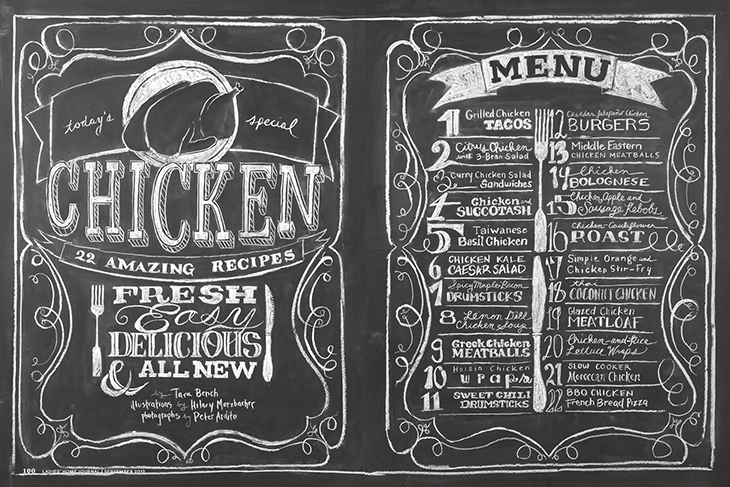 today's special
CHICKEN
22 AMAZING RECIPES
FRESH
Easy
DELICIOUS
& ALL NEW
by Tara Bench
illustrations by Hilary Merzbacher
photographs by Peter Ardito
100 LADIES' HOME JOURNAL | SEPTEMBER 2013
MENU
1 Grilled Chicken
TACOS
2 Citrus Chicken
with 3-Bean Salad
3 Curry Chicken Salad
Sandwiches
4 Chicken and
SUCCOTASH
5 Taiwanese
Basil Chicken
6 CHICKEN KALE
CAESAR SALAD
7 Spicy Maple-Bacon
DRUMSTICKS
8 Lemon Dill
Chicken Soup
9 Greek Chicken
MEATBALLS
10 Hoisin Chicken
wraps
11 SWEET CHILI
DRUMSTICKS
12 Cheddar Jalapeño Chicken
BURGERS
13 Middle Eastern
CHICKEN MEATBALLS
14 Chicken
BOLOGNESE
15 Chicken, Apple and
Sausage Kebobs
16 Chicken-Cauliflower
ROAST
17 Simple Orange and
Chicken Stir-Fry
18 thai
COCONUT CHICKEN
19 Glazed Chicken
MEATLOAF
20 Chicken-and-Rice
Lettuce Wraps
21 SLOW COOKER
Moroccan Chicken
22 BBQ CHICKEN
French Bread Pizza